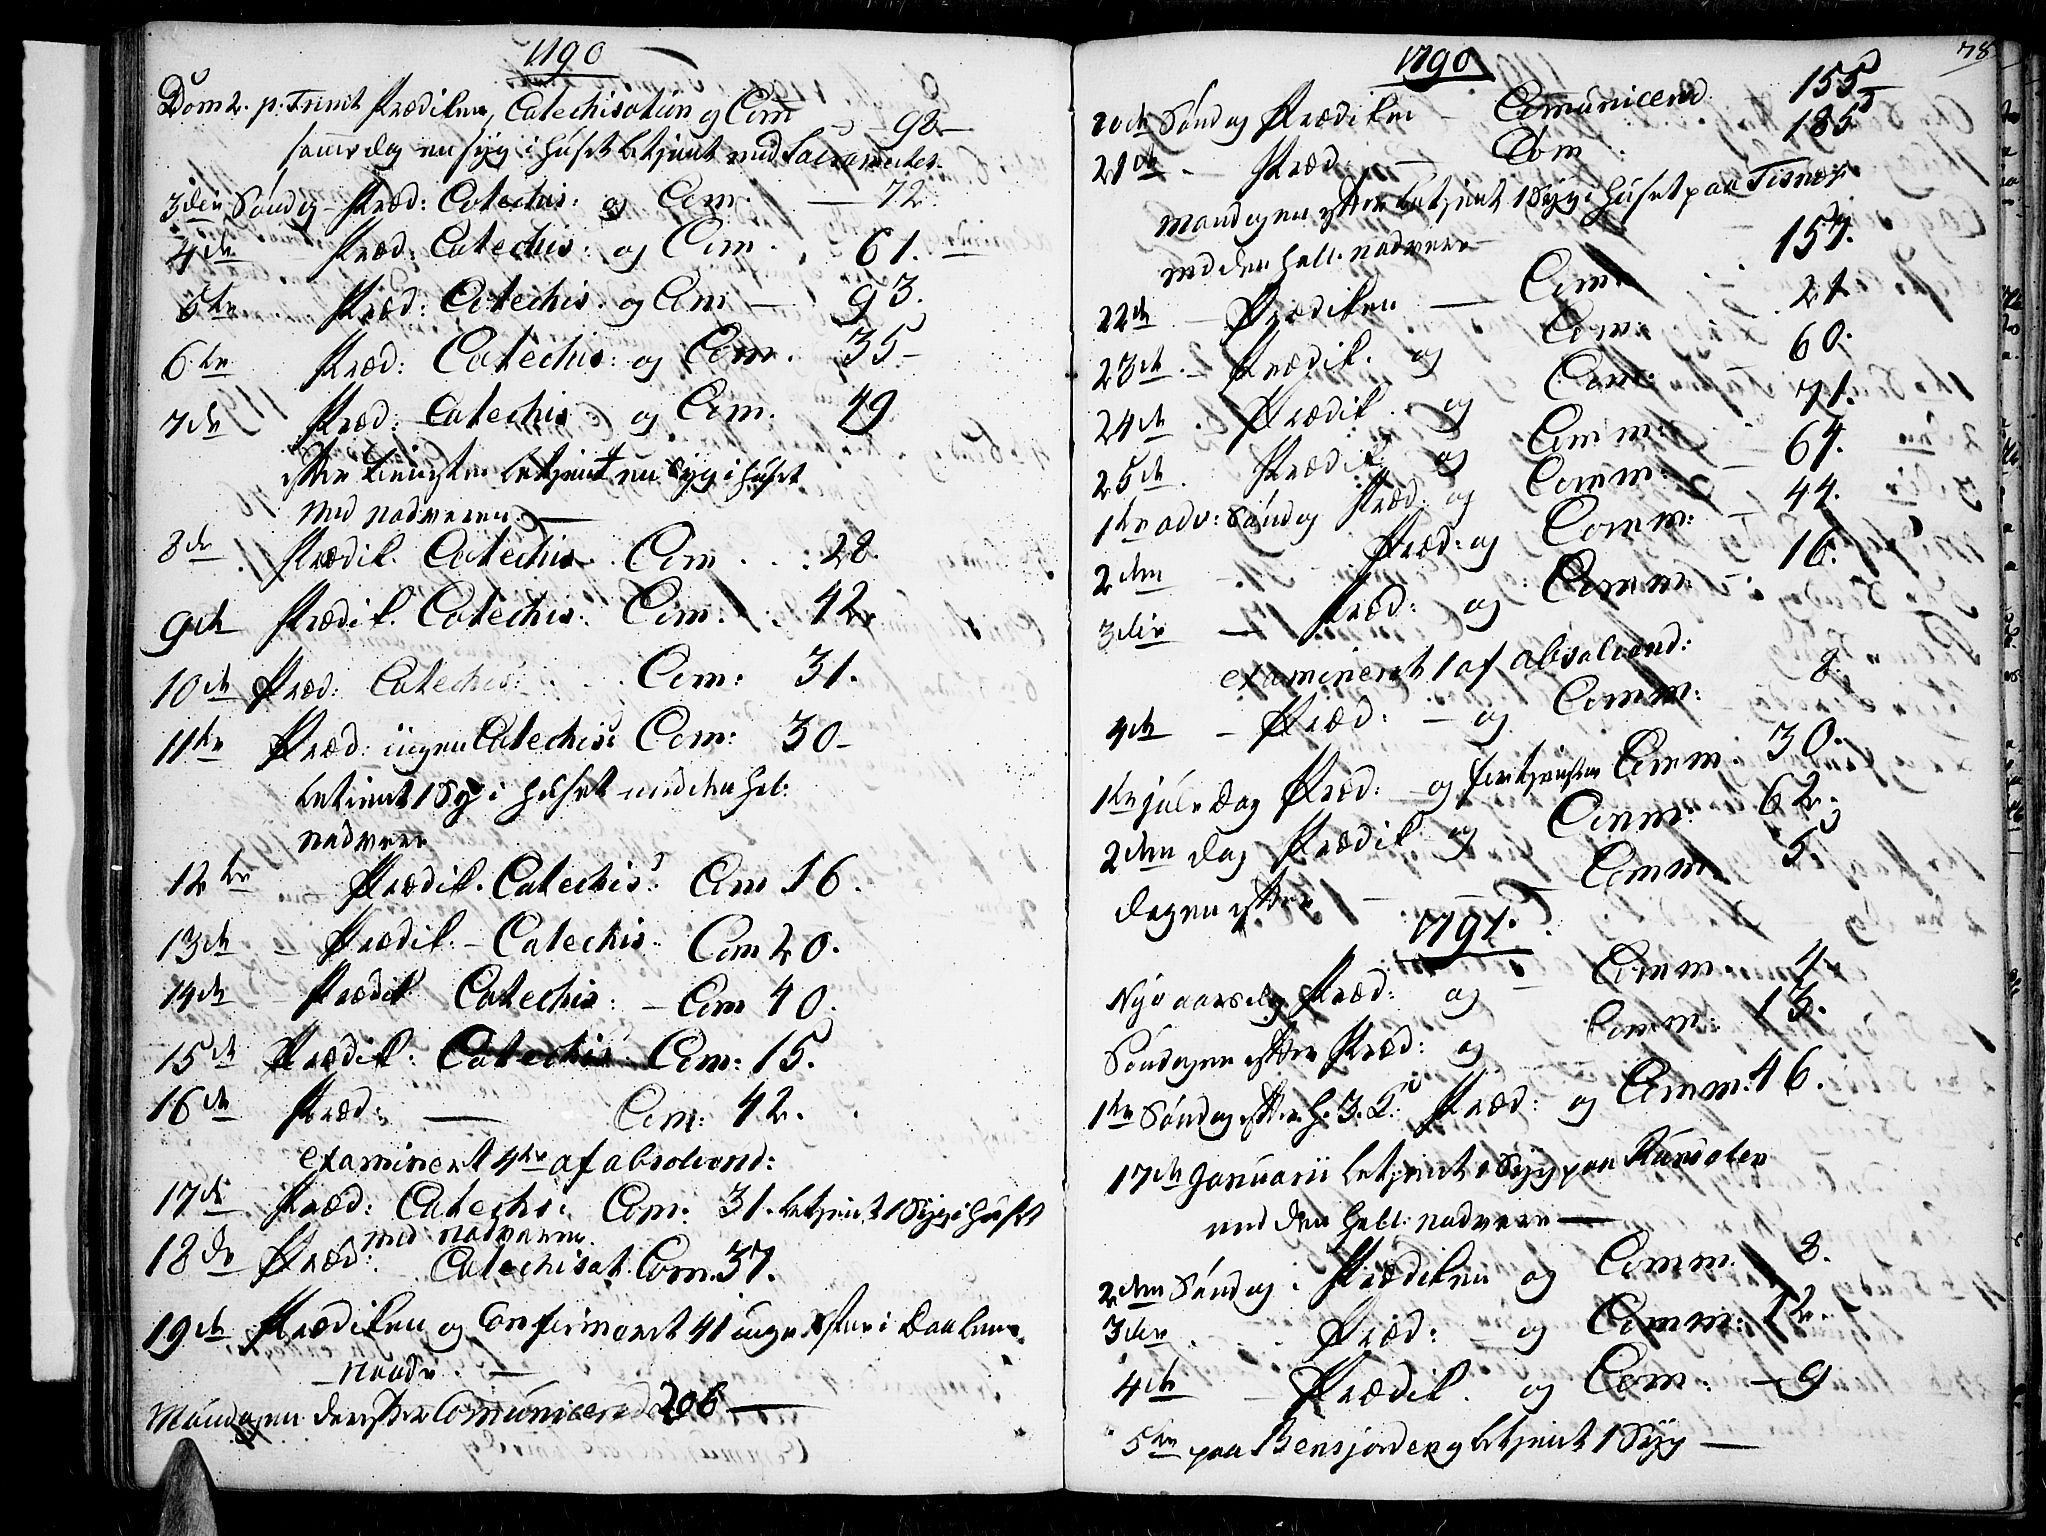 1790
Dom 2. p. Trinit Prædiken, Catechisation og Com 92
samme dag en syg i Huset betjent med Sacramentet.
3die Søndag - Præd: Catechis: og Com. — 72.
4de Præd: Catechis: og Com. 61.
5te Præd: Catechis. og Com — 93.
6te Præd: Catechis: og Com. 35 -
7de Præd: Catechis: og Com. 49
efter tienesten betjent en Syg i Huset
med nadveren. —
8de Prædik. Catechis. Com. : 28.
9de Prædik. Catechis: Com: 42.
10de Præd: Catechis: Com: 31.
11te Præd: ingen Catechis: Com: 30 -
betient 1 Syg i Huset med den hel:
nadvere
12te Prædik. Catechis: Com 16.
13de - Prædik: - Catechis: Com 20.
14de - Prædik Catechis: - Com 40.
15de Prædik: Catechis Com: 15.
16de Præd: — Com: 42.
examinert 4re af absolvend:
17de Præd: Catechs: Com: 31. betjent 1 Syg i Huset
med nadveren.
18de Præd: Catechisat. Com. 37.
19de Prædiken og Confirmeret 41 unge
naade. —
Mandagen derefter Comunicend 206 —
1790
78
20de Søndag Prædiken - Comunicend 155
21de - Præd: — Com 185
Mandagen efter betjent 1 Syg i Huset paa Tisnes
med den hell. nadvere
22de - Prædiken — Com: 157.
23de - Prædik. og Com: 21
24de Prædik. og Com: 60.
25de Prædik og Comm: 71.
1te adv: Søndag Præd: og Comm: 64.
2den Præd: og Comm: 44.
3die — Præd: og Comm: 16.
examineret 1 af absolvend:
4de - Præd: - og Comm: 8
1te juledag Præd: og Comm: 30.
2den dag Prædik og Comm: 62.
dagen efter — Comm. 5
1791.
Nyt aarsdag Præd: og Comm. 4
Søndagen efter Præd: og Comm: 13.
1te Søndag efter H. 3. K: Præd: og Comm: 46.
17de Januarii betjent 1 Syg paa
med den hell: nadvere —
2den Søndag. Prædiken og Comm. 8.
3die Præd: - og Comm: 12.
4de - Prædik. og Com: - 9
5te paa Bensjorden betjent 1 Syg —